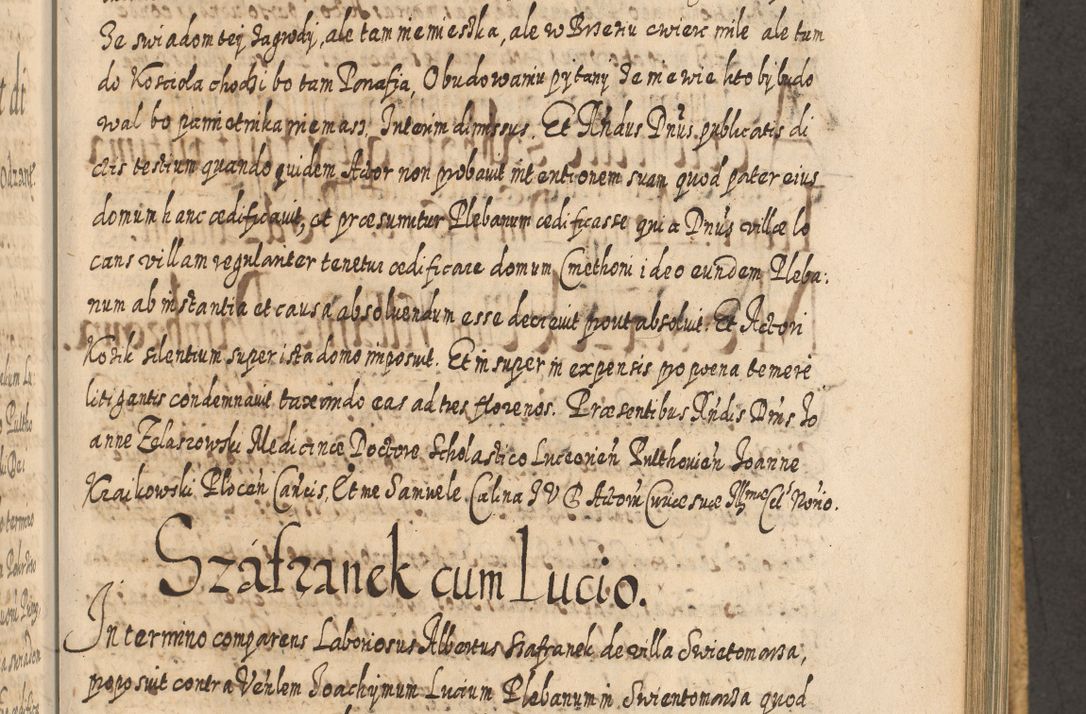 Ze swiadom tej Zagrody, ale tam nie mieszka, ale w Brzeziu cwierc mile ale tum
do Kosciola chodzi bo tam Parafja, O budowaniu pytany Ze nie wie kto by budo
wal bo pamiętnika nie masz. Interim dimissus. Et Rńdus Dńus publicatis di
ctis testium quando quidem Actor non probavit intentionem suam quod pater eius
domum hanc ædificavit, et præsumitur Plebanum ædificasse qui a Dńus villæ lo
cans villam regulariter tenetur ædificare domum Cmethoni ideo eundem Pleba:
num ab instantia et causa absolvendum esse decrevit prout absolvit. Et Actori
Kozik silentium super ista domo imposuit. Et insuper in expensis pro poena temere
litigantis condemnavit taxando eas ad tres florenos. Præsentibus Rńdis Dńis Jo
anne Zelaszowski Medicinæ Doctore Scholastico Luceorień Pulthovień Joanne
Krajkowski Plocen Cańcis, Et me Samuele Calina J V D Actorū Curiæ suæ Illmæ Cels Norio.
Száfranek cum Lucio.
In termino comparens Laboriosus Albertus Szafranek de villa Swietomarza,
proposuit contra Venblem Joachymum Lucium Plebanum in Swientomarza quod